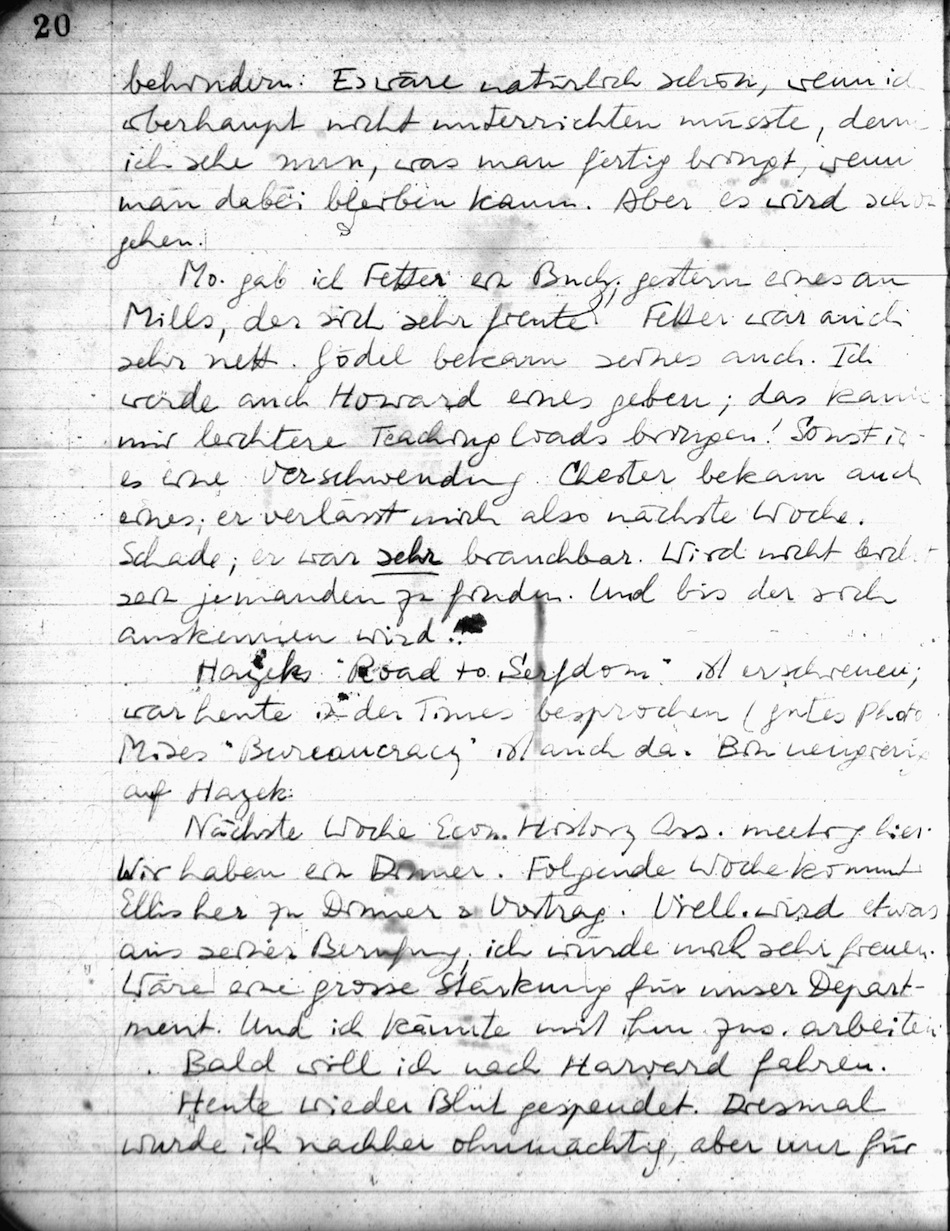 20
behindern. Es wäre natürlich schön, wenn ic
überhaupt nicht unterrichten müsste, denn
ich sehe nun, was man fertig bringt, wenn
man dabei bleiben kann. Aber es wird scho
gehen.
Mo. gab ich Fetter ein Buch; gestern eines an
Mills, der sich sehr freute. Fetter war auch
sehr nett. Gödel bekam seines auch. Ich
werde auch Howard eines geben; das kann
mir leichtere Teaching loads bringen! Sonst is
es eine Verschwendung. Chester bekam auch
eines; er verlässt mich also nächste Woche.
Schade; er war sehr brauchbar. Wird nicht leich
sein jemanden zu finden. Und bis der sich
auskennen wird..
Hayeks "Road to Serfdom" ist erschienen;
war heute in der Times besprochen (gutes Photo
Mises "Bureaucracy" ist auch da. Bin neugierig
auf Hayek.
Nächste Woche Econ. History Ass. meeting hier.
Wir haben ein Dinner. Folgende Woche kommt
Ellis her zu Dinner & Vortrag. Viell. wird etwas
aus seiner Berufung; ich würde mich sehr freuen.
Wäre eine grosse Stärkung für unser Depart-
ment. Und ich könnte mit ihm zus. arbeiten
Bald will ich nach Harvard fahren.
Heute wieder Blut gespendet. Diesmal
wurde ich nachher ohnmächtig, aber nur für